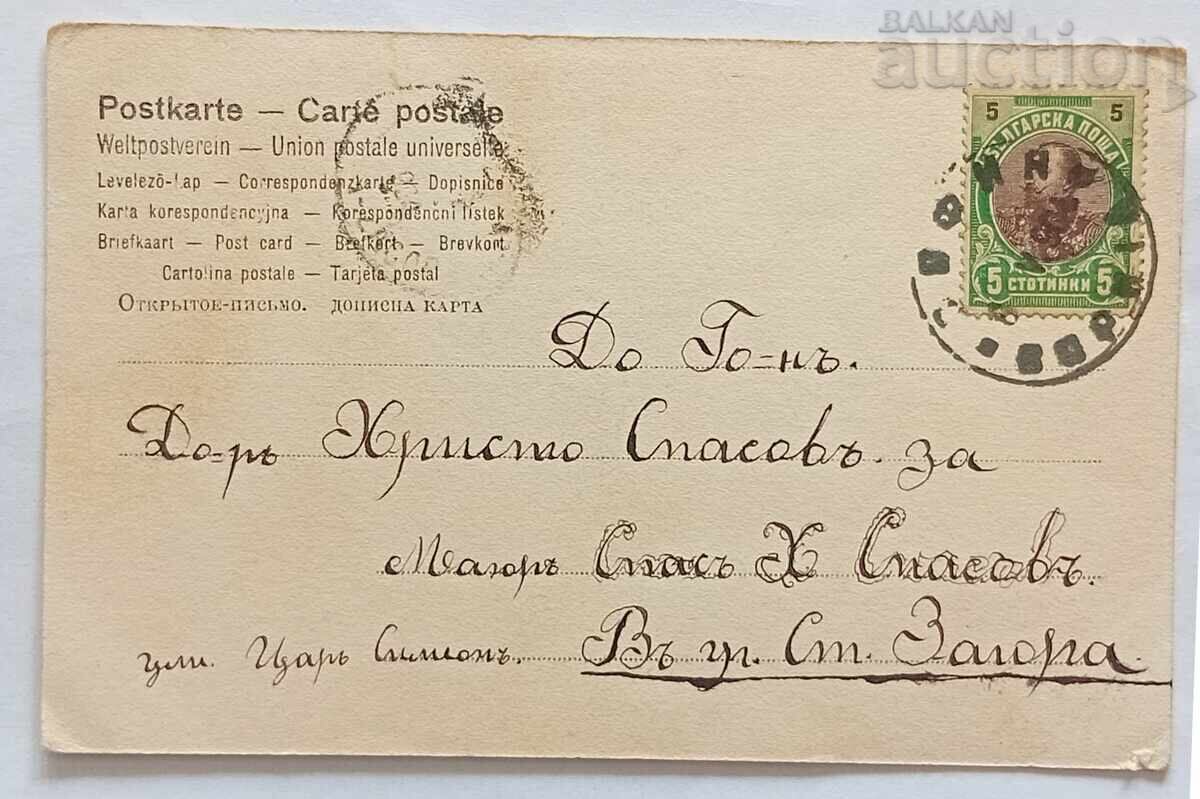 BALKAN
auction
Postkarte — Carte postale
Weltpostverein — Union postale universelle
Levelező-Lap — Correspondenzkarte — Dopisnice
Karta korespondencyjna — Korespondenční lístek
Briefkaart — Post card — Brefkort — Brevkort
Cartolina postale — Tarjeta postal
Открытое-письмо. дописна карта
5 5
БЪЛГАРСКА ПОЩА
5 СТОТИНКИ 5
До Го-нъ.
До-ръ Христо Спасовъ. за
Маиоръ Спасъ Х Спасовъ.
ули. Царь Симионъ. Въ гр. Ст. Загора.